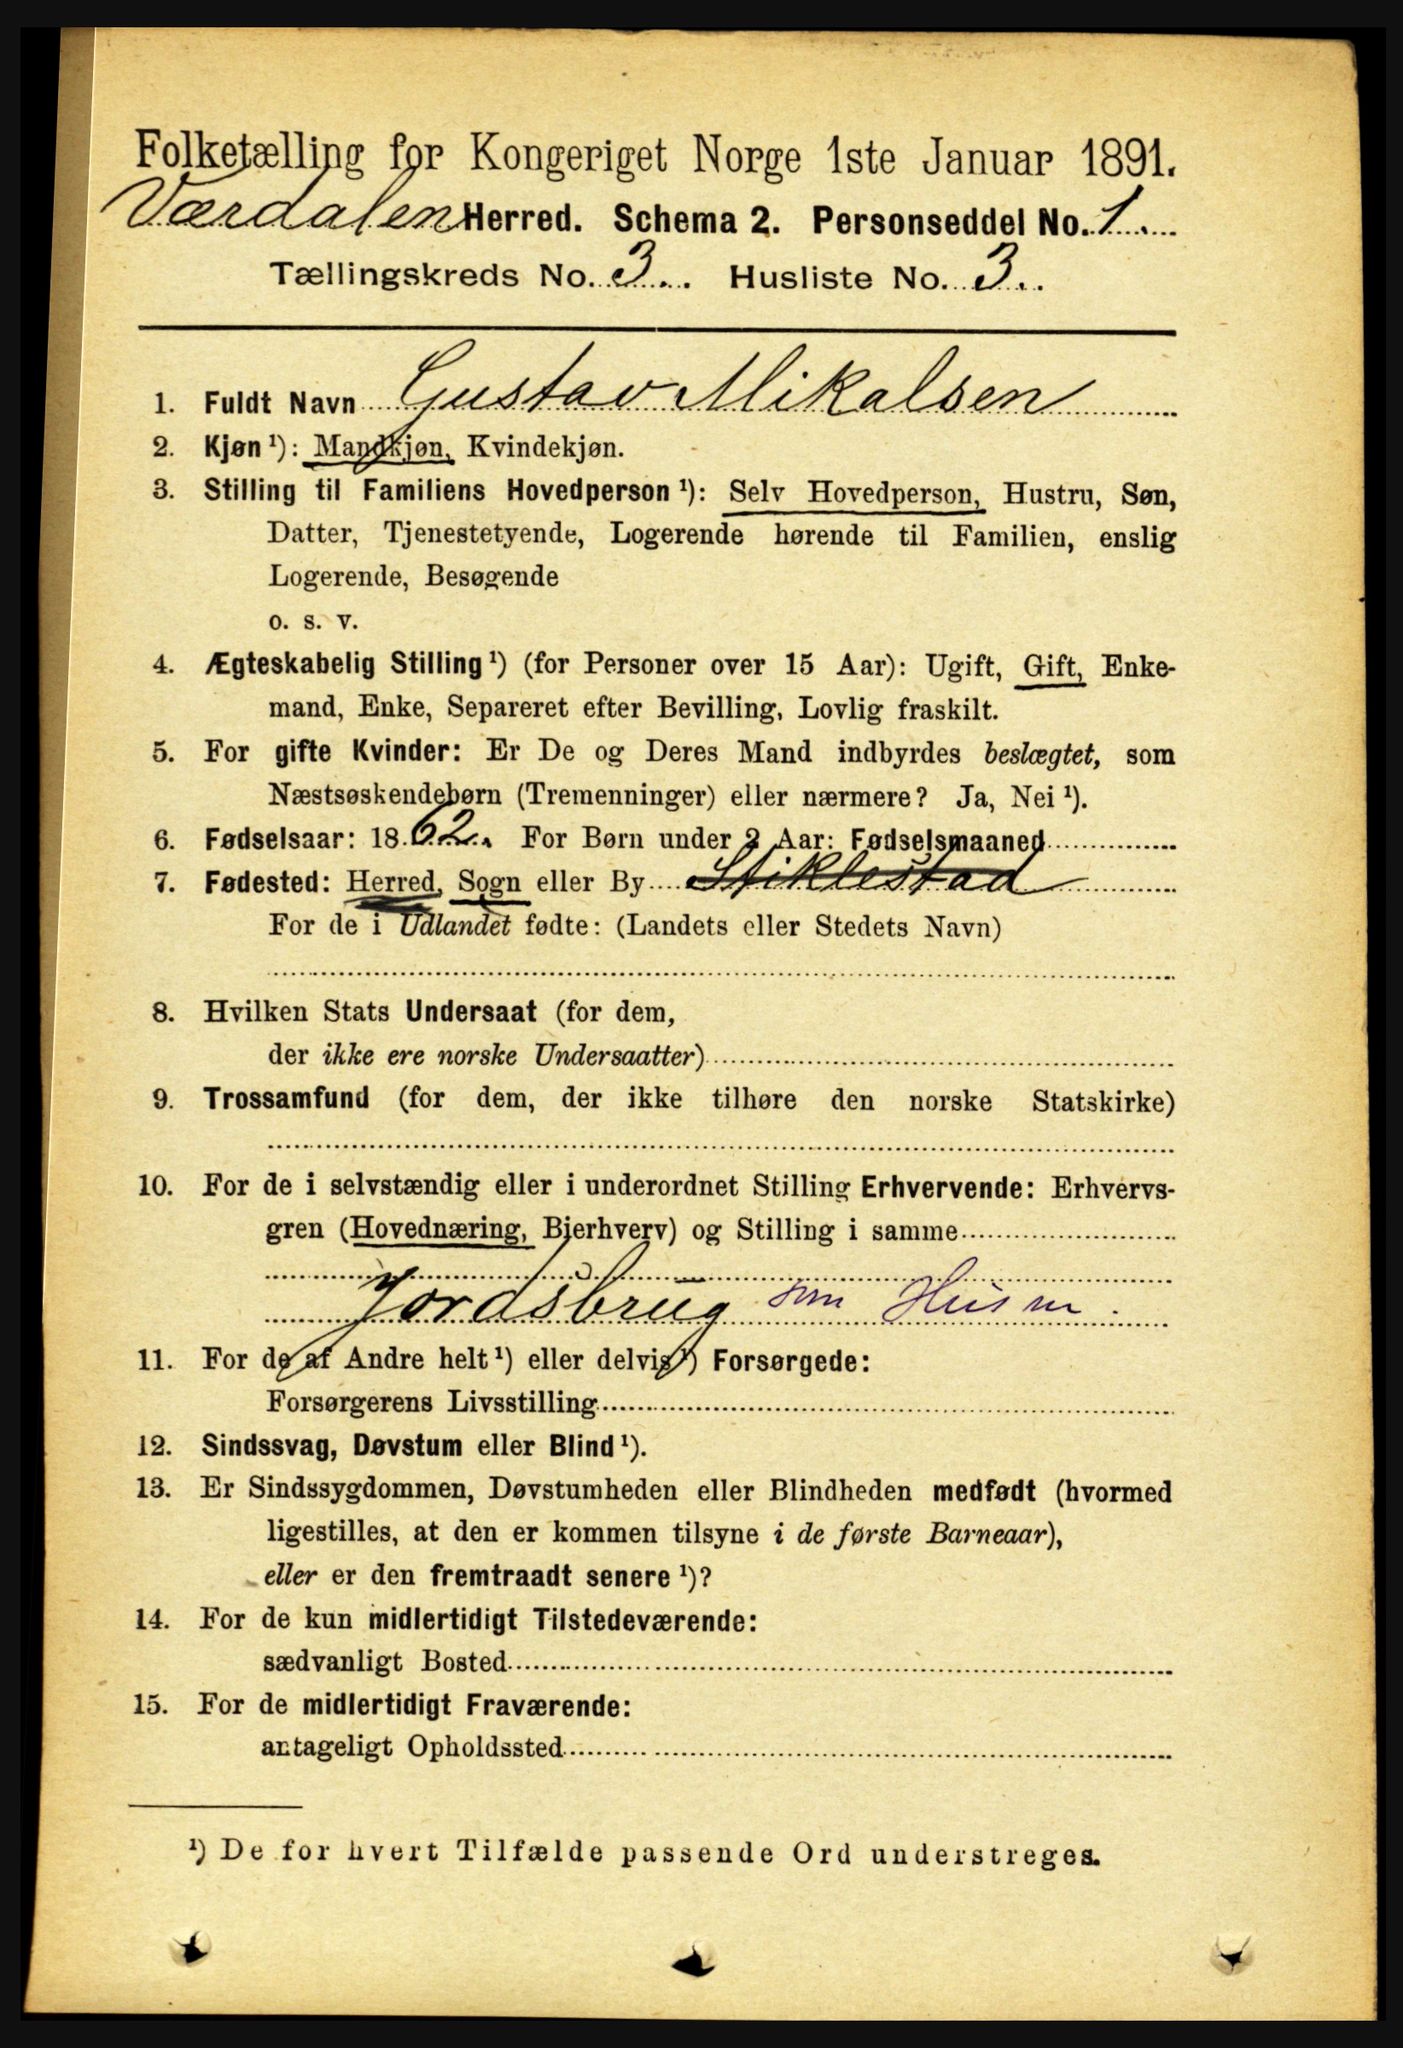 Folketælling for Kongeriget Norge 1ste Januar 1891.
Værdalen Herred. Schema 2. Personseddel No. 1
Tællingskreds No. 3. Husliste No. 3.
1. Fuldt Navn Gustav Mikalsen
2. Kjøn ¹): Mandkjøn, Kvindekjøn.
3. Stilling til Familiens Hovedperson ¹): Selv Hovedperson, Hustru, Søn,
Datter, Tjenestetyende, Logerende hørende til Familien, enslig
Logerende, Besøgende
o. s. v.
4. Ægteskabelig Stilling ¹) (for Personer over 15 Aar): Ugift, Gift, Enke-
mand, Enke, Separeret efter Bevilling, Lovlig fraskilt.
5. For gifte Kvinder: Er De og Deres Mand indbyrdes beslægtet, som
Næstsøskendebørn (Tremenninger) eller nærmere? Ja, Nei ¹).
6. Fødselsaar: 1862. For Børn under 2 Aar: Fødselsmaaned
7. Fødested: Herred, Sogn eller By Stiklestad
For de i Udlandet fødte: (Landets eller Stedets Navn)
8. Hvilken Stats Undersaat (for dem,
der ikke ere norske Undersaatter)
9. Trossamfund (for dem, der ikke tilhøre den norske Statskirke)
10. For de i selvstændig eller i underordnet Stilling Erhvervende: Erhvervs-
gren (Hovednæring, Bierhverv) og Stilling i samme
Jordsbrug som Husm.
11. For de af Andre helt ¹) eller delvis ¹) Forsørgede:
Forsørgerens Livsstilling
12. Sindssvag, Døvstum eller Blind ¹).
13. Er Sindssygdommen, Døvstumheden eller Blindheden medfødt (hvormed
ligestilles, at den er kommen tilsyne i de første Barneaar),
eller er den fremtraadt senere ¹)?
14. For de kun midlertidigt Tilstedeværende:
sædvanligt Bosted
15. For de midlertidigt Fraværende:
antageligt Opholdssted
¹) De for hvert Tilfælde passende Ord understreges.